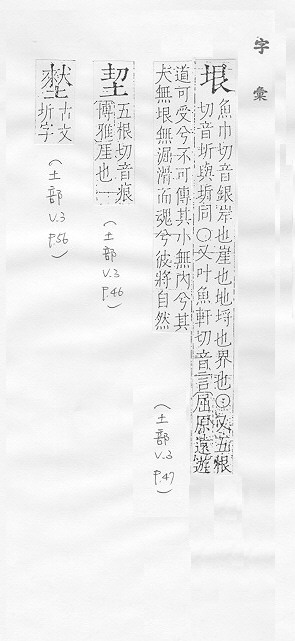 字彙
垠
魚巾切音銀岸也崖也地埒也界也○又五根
切音圻與圻同○又叶魚軒切音言屈原遠遊
道可受兮不可傳其小無內兮其
大無垠無淈滑而魂兮彼將自然
(土部 V.3 P.47)
五根切音痕
博雅厓也
(土部 V.3 P.46)
古文
圻字
(土部 V.3 P.56)